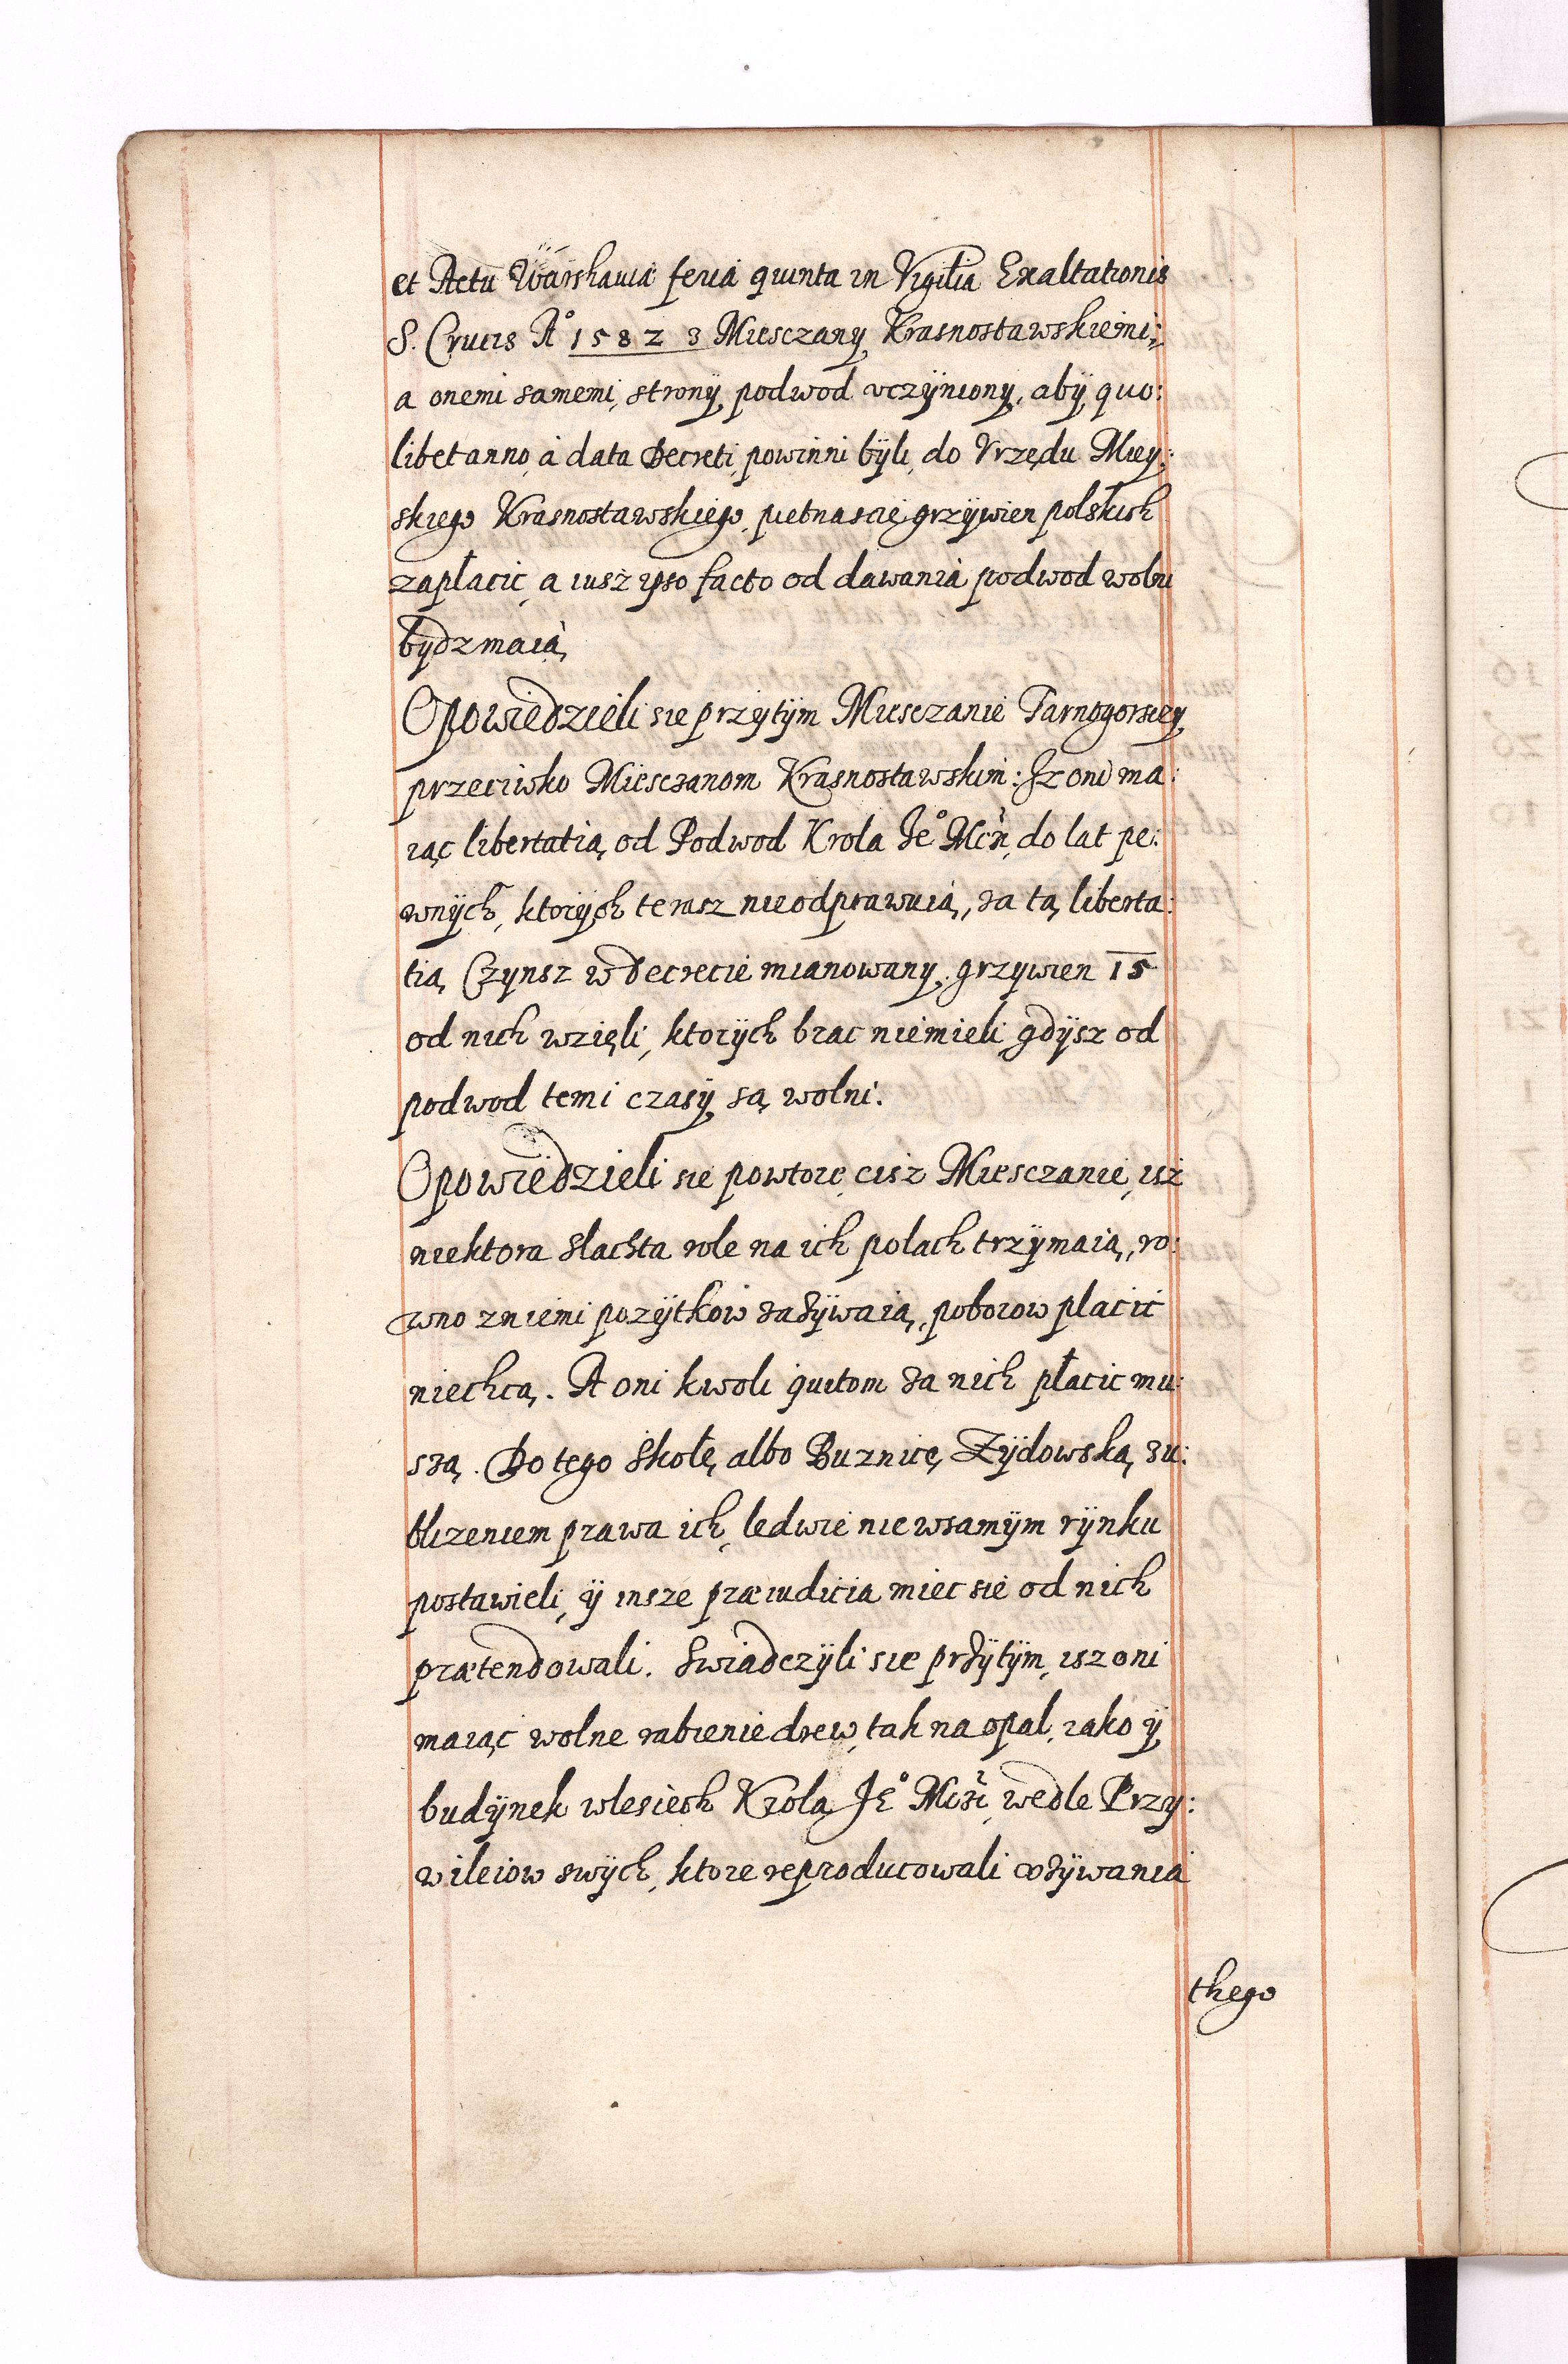 et Actu Warshauia feria quinta in Vigilia Exaltationis
S. Crucis A° 1582 z Miesczany Krasnostawskiemi:
a onemi samemi, strony podwod vczÿniony, abÿ quo:
libet anno, à data Decreti, powinni bÿli, do Vrzędu Miey:
skiego Krasnostawskiego, pietnascie grzÿwien polskich
zapłacic, a iusz ipso facto od dawania podwod wolni
bydz maią,
Opowiedzieli sie przÿtÿm Miesczanie Tarnogorscy
przeciwko Miesczanom Krasnostawskim: Jz oni ma:
iąc libertatią, od Podwod Krola Je° Mći, do lat pe:
wnÿch, ktorÿch terasz nieodprawuią, za tą liberta:
tią, Czynsz w Decrecie mianowany, grzywien 15
od nich wzięli, ktorÿch brac niemieli, gdÿsz od
podwod temi czasÿ są wolni.
Opowiedzieli sie powtore, cisz Miesczanie, isz
niektora slachta role na ich polach trzÿmaią, ro:
wno z niemi pozÿtkow zazÿwaią, poborow placic
niechcą. A oni kwoli quitom za nich płacic mu:
szą. Do tego skołę, albo Buznicę, Zÿdowską, zu:
bliżeniem prawa ich, ledwie nie wsamÿm rÿnku
postawieli, ÿ insze præiudicia miec sie od nich
prætendowali. Swiadczÿli sie przÿtÿm, isz oni
maiąc wolne rabienie drew, tak na opal, iako ÿ
budÿnek wlesiech Krola Je° Mći, wedle Przy:
wileiow swÿch, ktore reproducowali vzÿwania
thego